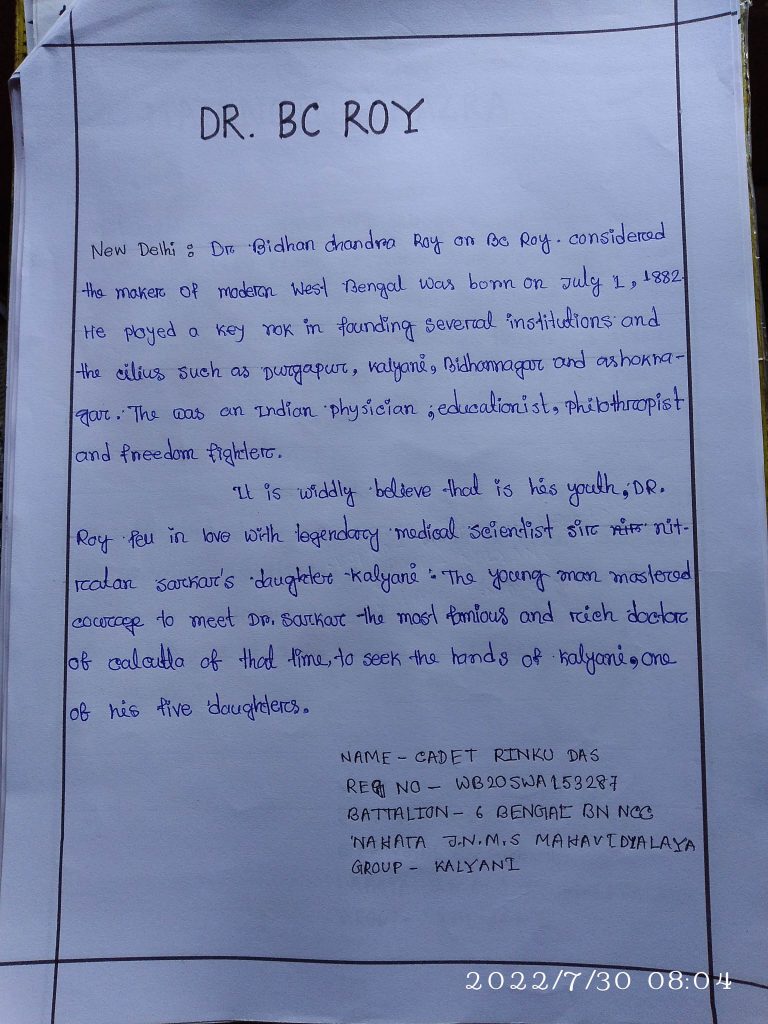 DR. BC ROY
New Delhi : Dr Bidhan chandra Roy or Bc Roy. considered
the maker of modern West Bengal was born on July 1, 1882.
He played a key rok in founding several institutions and
the cilius such as Durgapur, Kalyani, Bidhannagar and ashokna-
gar. The was an Indian physician ; educationist, philothropist
and freedom fighter.
It is widdly believe that is his youth, DR.
Roy feu in love with legendary medical scientist sir nit-
ratan sarkar's daughter Kalyani. The young man mastered
courage to meet Dr. Sarkar the most famious and rich doctor
of calcutta of that time, to seek the hands of Kalyani, one
of his five daughters.
NAME - CADET RINKU DAS
REG NO - WB20SWA153287
BATTALION - 6 BENGAL BN NCC
NAHATA J.N.M.S MAHAVIDYALAYA
GROUP - KALYANI
2022/7/30 08:04